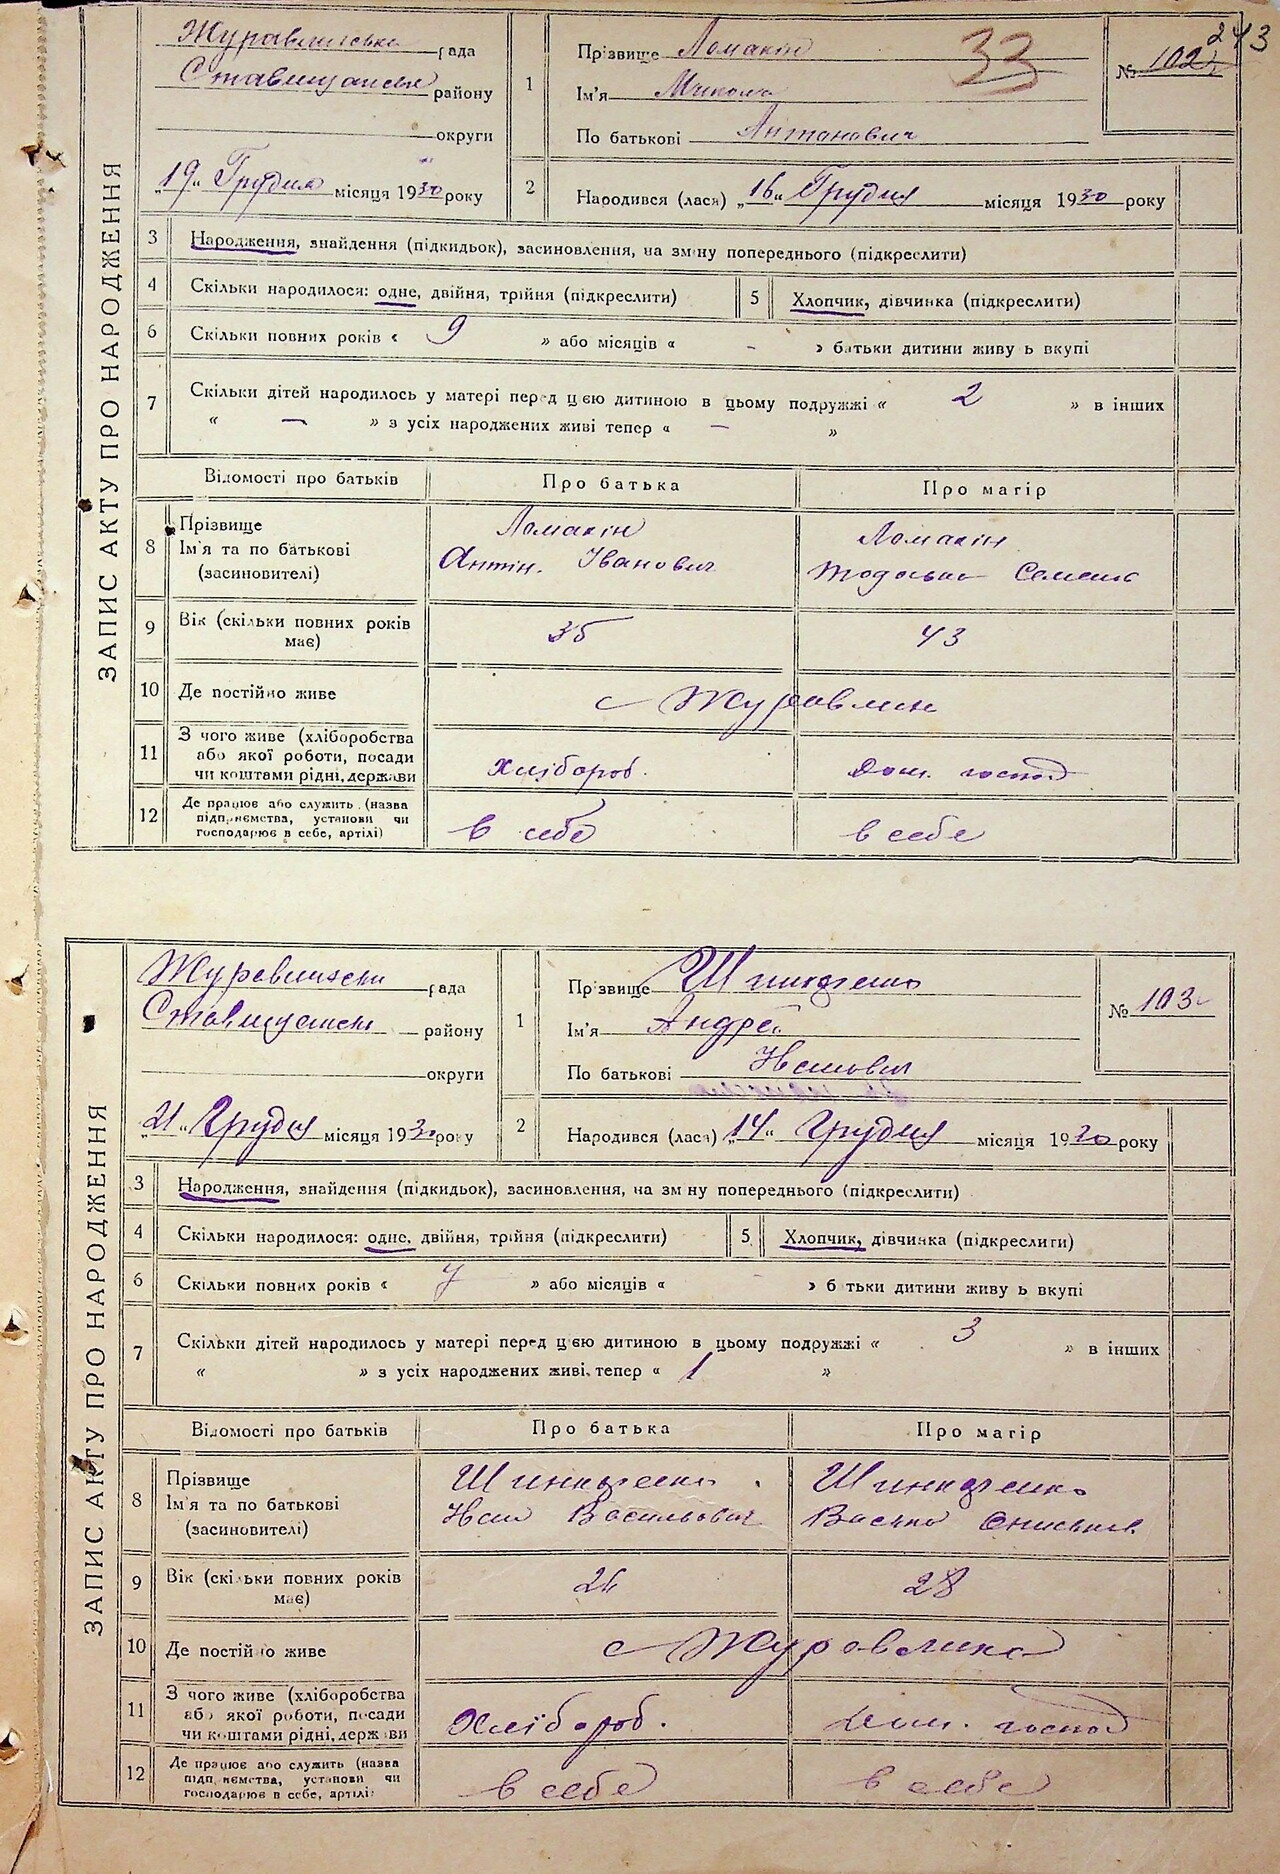 243
33
ЗАПИС АКТУ ПРО НАРОДЖЕННЯ
Журавлинська рада
Ставищанськ району
округи
„19" Грудня місяця 1930 року
1 Прізвище Ломакін
Ім'я Микола
По батькові Антонович
№ 102
2 Народився (лася) „16" Грудня місяця 1930 року
3 Народження, знайдення (підкидьок), засиновлення, на зміну попереднього (підкреслити)
4 Скільки народилося: одне, двійня, трійня (підкреслити) 5 Хлопчик, дівчинка (підкреслити)
6 Скільки повних років « 9 » або місяців « - » батьки дитини живуть вкупі
7 Скільки дітей народилось у матері перед цією дитиною в цьому подружжі « 2 » в інших
« — » з усіх народжених живі тепер « — »
Відомості про батьків Про батька Про матір
8 Прізвище Ломакін Ломакін
Ім'я та по батькові Антін. Іванович Тодоська Семен
(засиновителі)
9 Вік (скільки повних років має) 35 43
10 Де постійно живе с Журавлин
11 З чого живе (хліборобства
або якої роботи, посади
чи коштами рідні, держави Хлібороб. Дом. господ
12 Де працює або служить (назва
підприємства, установи чи
господарює в себе, артілі) в себе в себе
ЗАПИС АКТУ ПРО НАРОДЖЕННЯ
Журавлинськ рада
Ставищанськ району
округи
„21" Грудня місяця 1930 року
1 Прізвище Шинкаренко
Ім'я Андрей
По батькові Иванович
№ 103
2 Народився (лася) „14" Грудня місяця 1930 року
3 Народження, знайдення (підкидьок), засиновлення, на зміну попереднього (підкреслити)
4 Скільки народилося: одне, двійня, трійня (підкреслити) 5 Хлопчик, дівчинка (підкреслити)
6 Скільки повних років « 7 » або місяців « - » батьки дитини живуть вкупі
7 Скільки дітей народилось у матері перед цією дитиною в цьому подружжі « 3 » в інших
« » з усіх народжених живі тепер « 1 »
Відомості про батьків Про батька Про матір
8 Прізвище Шинкаренко Шинкаренко
Ім'я та по батькові Иван Васильович
(засиновителі)
9 Вік (скільки повних років має) 26 28
10 Де постійно живе с Журавлика
11 З чого живе (хліборобства
або якої роботи, посади
чи коштами рідні, держави Хлібороб. Дом. господ
12 Де працює або служить (назва
підприємства, установи чи
господарює в себе, артілі) в себе в себе